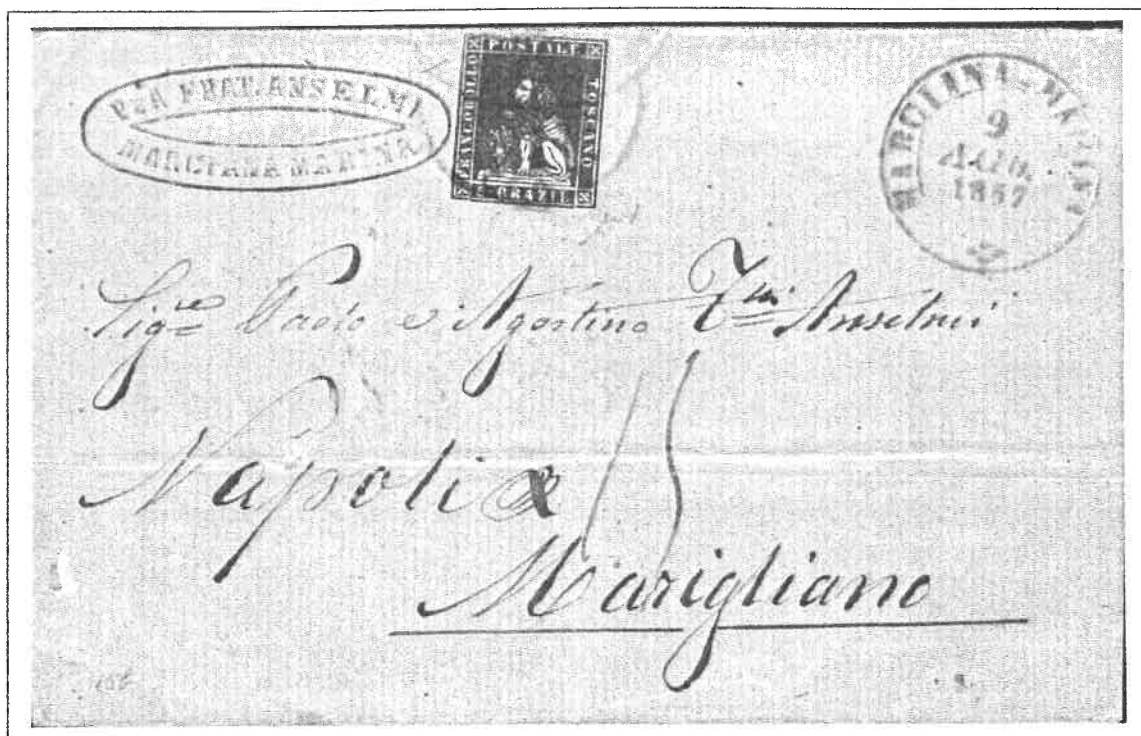 FRAT. ANSELMI
MARCIANA MARINA
FRANCOBOLLO POSTALE TOSCANO
2 CRAZIE
MARCIANA-MARINA
9
1857
Sig.re Paolo e Agostino Anselmi
15
Napoli
Marigliano